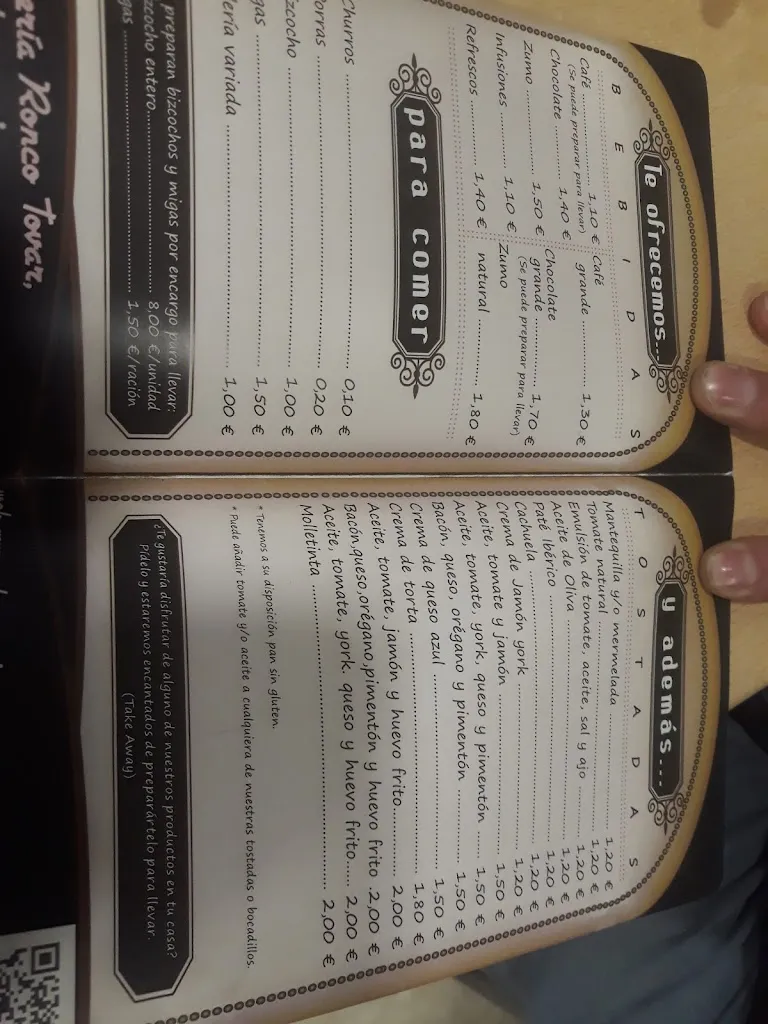 Te ofrecemos...
BEBIDAS
Café ............ 1,10 €
(Se puede preparar para llevar)
Chocolate ............ 1,40 €
Zumo ............ 1,50 €
Infusiones ............ 1,10 €
Refrescos ............ 1,40 €
Café
grande ............ 1,30 €
Chocolate
grande ............ 1,70 €
(Se puede preparar para llevar)
Zumo
natural ............ 1,80 €
para comer
Churros ............ 0,10 €
Porras ............ 0,20 €
zcocho ............ 1,00 €
gas ............ 1,50 €
ería variada ............ 1,00 €
preparan bizcochos y migas por encargo para llevar:
zcocho entero............ 8,00 €/unidad
gas ............ 1,50 €/ración
ería Ronco Tovar,
y además...
TOSTADAS
Mantequilla y/o mermelada ............ 1,20 €
Tomate natural ............ 1,20 €
Emulsión de tomate, aceite, sal y ajo ............ 1,20 €
Aceite de Oliva ............ 1,20 €
Paté Ibérico ............ 1,20 €
Cachuela ............ 1,20 €
Crema de Jamón york ............ 1,20 €
Aceite, tomate y jamón ............ 1,50 €
Aceite, tomate, york, queso y pimentón ............ 1,50 €
Bacón, queso, orégano y pimentón ............ 1,50 €
Crema de queso azul ............ 1,50 €
Crema de torta ............ 1,80 €
Aceite, tomate, jamón y huevo frito............ 2,00 €
Bacón,queso,orégano,pimentón y huevo frito .2,00 €
Aceite, tomate, york. queso y huevo frito..... 2,00 €
Molletinta ............ 2,00 €
* Tenemos a su disposición pan sin gluten.
* Puede añadir tomate y/o aceite a cualquiera de nuestras tostadas o bocadillos.
¿Te gustaría disfrutar de alguno de nuestros productos en tu casa?
Pídelo y estaremos encantados de preparártelo para llevar.
(Take Away)